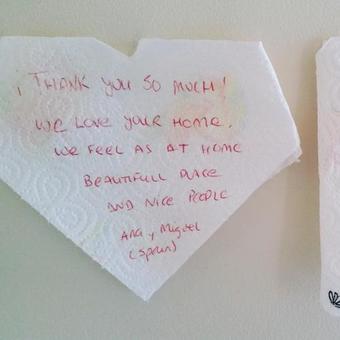 ¡THANK YOU SO MUCH!
WE LOVE YOUR HOME.
WE FEEL AS AT HOME
BEAUTIFULL PLACE
AND NICE PEOPLE
Ana y Miguel
(Spain)